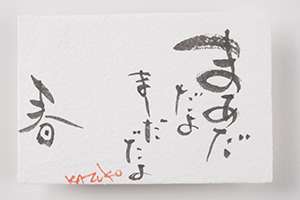 まあだ
だよ
まだ
だよ
春
KAZUKO